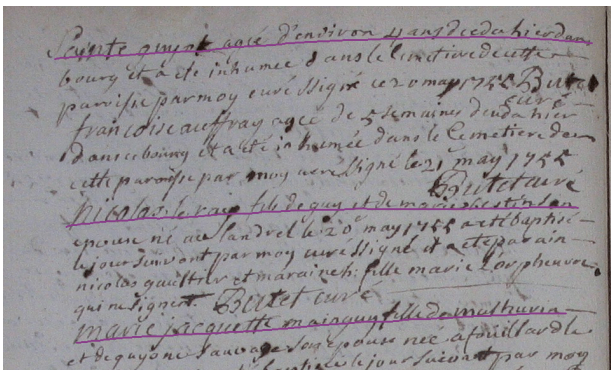 agee d'environ 4 ans deceda hier dans
bourg et a ete inhumee dans le Cimetiere de cette
paroisse par moy curé ssigné ce 20 may 1755 Butet
curé
francoise auffray agee de 5 semaines deceda hier
dans ce bourg et a ete inhumée dans le Cemetiere de
cette paroisse par moy curé ssigné le 21 may 1755
Butet curé
Nicolas le fils de guy et de marie
epouse né au landrel le 20 may 1755 a ete baptisé
le jour suivant par moy curé ssigné et a ete parain
nicolas gaultier et maraine h. fille marie
qui ne signent Butet curé
marie jacquette mainguy fille de mathurin
et de guyone Sauvage son epouse née a fouillard le
le jour suivant par moy